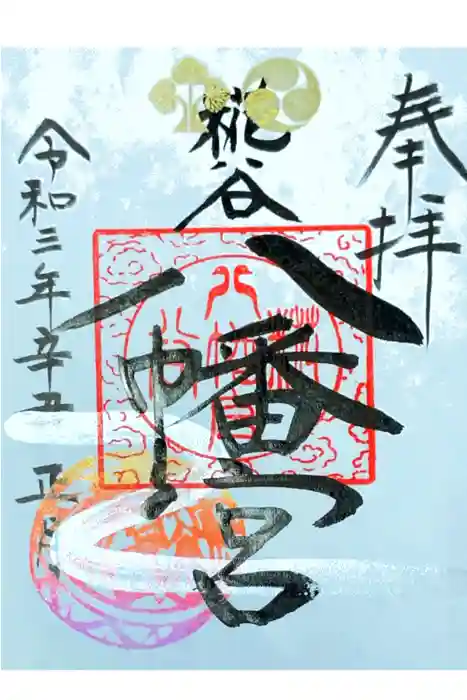 奉拝
糀谷
八幡宮
令和三年辛丑 正月